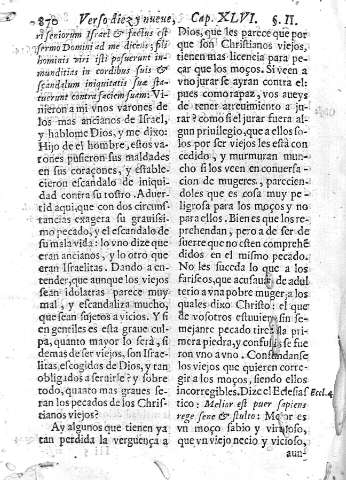 870 Verso diez y nueve, Cap. XLVI. §. II.
ri seniorum Israel & factus est
sermo Domini ad me dicens; fili
hominis viri isti posuerunt in-
munditias in cordibus suis &
scandalum iniquitatis suæ sta-
tuerunt contra faciem suam: Vi-
nieron a mi vnos varones de
los mas ancianos de Israel,
y hablome Dios, y me dixo:
Hijo del hombre, estos varo-
nes pusieron sus maldades
en sus coraçones, y estable-
cieron escandalo de iniqui-
dad contra su rostro. Aduer-
tid aqui, que con dos circuns-
tancias exagera su grauissi-
mo pecado, y el escandalo de
su mala vida: lo vno dize que
eran ancianos, y lo otro que
eran Israelitas. Dando a en-
tender, que aunque los viejos
sean idolatras parece muy
mal, y escandaliza mucho,
que sean sujetos a vicios. Y si
en gentiles es esta graue cul-
pa, quanto mayor lo será, si
demas de ser viejos, son Israe-
litas, escogidos de Dios, y tan
obligados a seruirle? y sobre
todo, quanto mas graues se-
ran los pecados de los Chris-
tianos viejos?
Ay algunos que tienen ya
tan perdida la verguença a
Dios, que les parece que por
que son Christianos viejos,
tienen mas licencia para pe-
car que los moços. Si veen a
vno jurar se ayran contra el:
pues como rapaz, vos aueys
de tener atreuimiento a ju-
rar? como si el jurar fuera al-
gun priuilegio, que a ellos so-
los por ser viejos les està con
cedido, y murmuran mun-
cho si los veen en conuersa-
cion de mugeres, parecien-
doles que es cosa muy pe-
ligrosa para los moços y no
para ellos. Bien es que los re-
prehendan, pero a de ser de
suerte que no esten comprehe
didos en el mismo pecado.
No les suceda lo que a los
fariseos, que acusauā de adul-
terio a vna pobre muger a los
quales dixo Christo: el que
de vosotros estuuiere sin se-
mejante pecado tire la pri-
mera piedra, y confusos se fue
ron vno a vno. Contandanse
los viejos que quieren corre-
gir a los moços, siendo ellos
incorregibles. Dize el Eclesias Eccl. 4.
tico: Melior est puer sapiens
rege sene & stulto: Mejor es
vn moço sabio y virtuoso,
que vn viejo necio y vicioso,
aun-